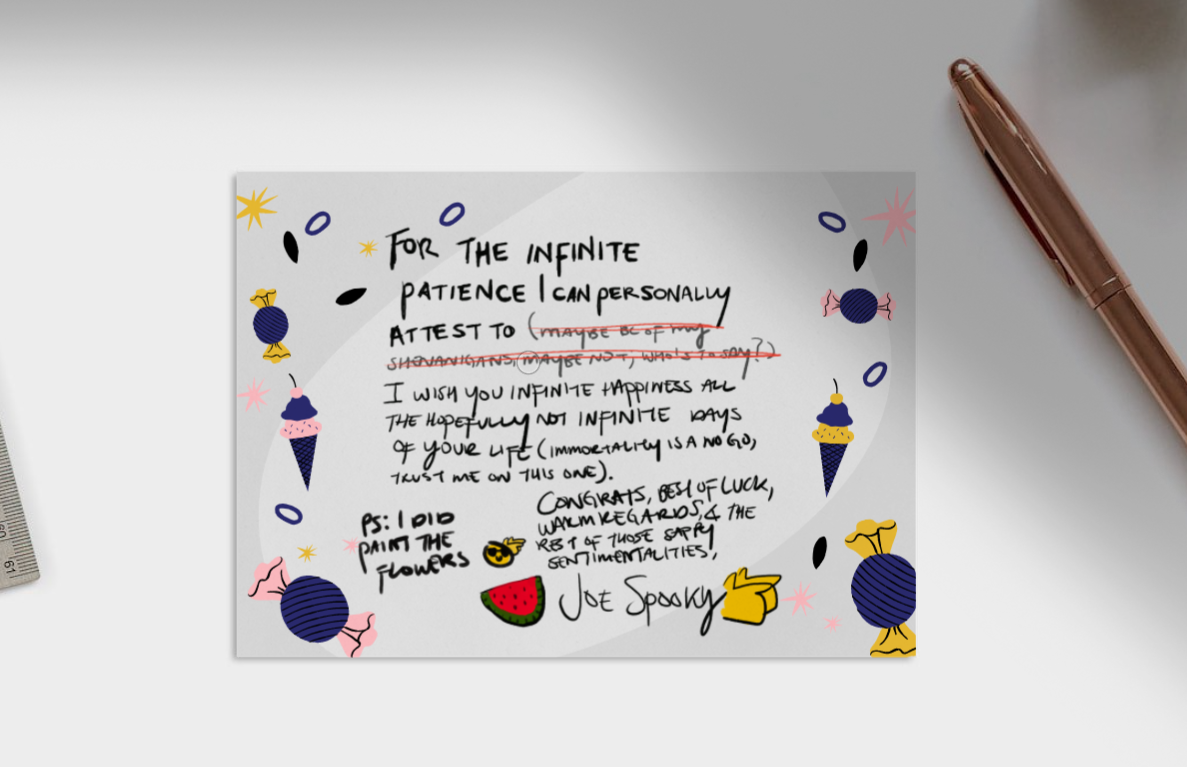 FOR THE INFINITE
PATIENCE I CAN PERSONALLY
ATTEST TO (MAYBE BC OF MY
SHENANIGANS, MAYBE NOT, WHO'S TO SAY?)
I WISH YOU INFINITE HAPPINESS ALL
THE HOPEFULLY NOT INFINITE DAYS
OF YOUR LIFE (IMMORTALITY IS A NO GO,
TRUST ME ON THIS ONE).
CONGRATS, BEST OF LUCK,
WARM REGARDS, & THE
REST OF THOSE SAPPY
SENTIMENTALITIES,
JOE SPOOKY
PS: I DID
PAINT THE
FLOWERS
61